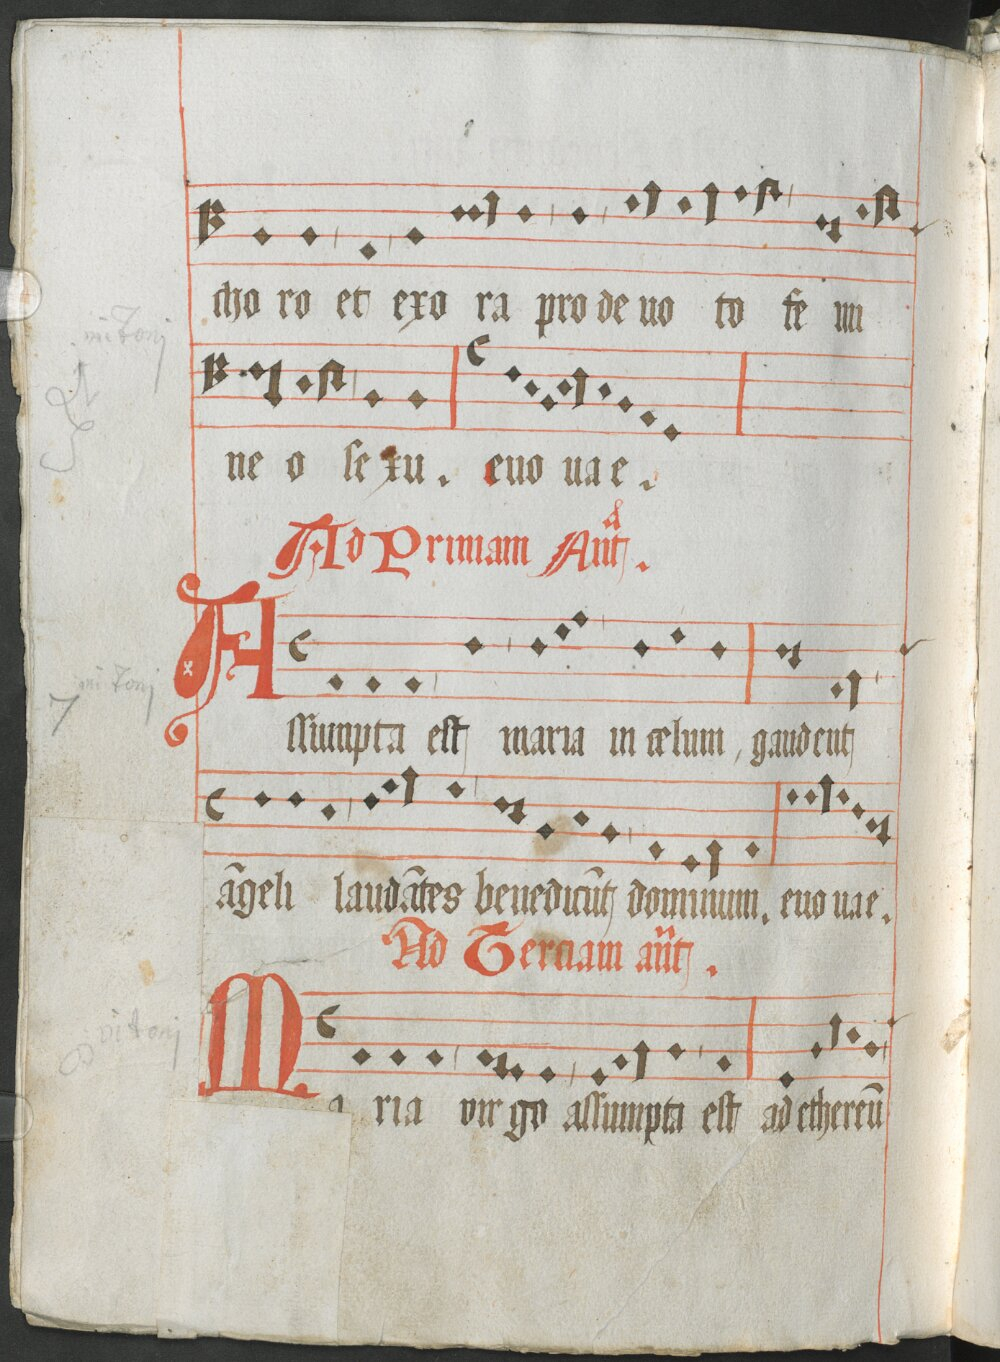 cho ro et exo ra pro de uo to fe mi
ne o se xu. euo uae.
Ad Primam Ant.
Assumpta est maria in celum, gaudent
āgeli laudātes benedicūt dominum. euo uae.
Ad Terciam ant.
Maria virgo assumpta est ad ethereū